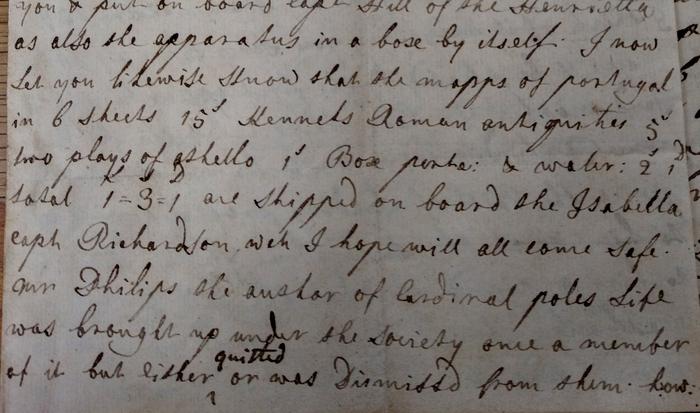 you & put on board capt Hill of the Henrietta
as also the apparatus in a boxe by itself. I now
Let you likewise Know that the mapps of portugal
in 6 sheets 15s Kennets Roman antiquities 5s
two plays of othello 1s Box porte: & water: 2s 1D
total 1=3=1 are shipped on board the Isabella
capt Richardson wch I hope will all come safe.
mr Philips the author of Cardinal poles Life
was brought up under the Society once a member
of it but either quitted or was Dismissd from them. how: